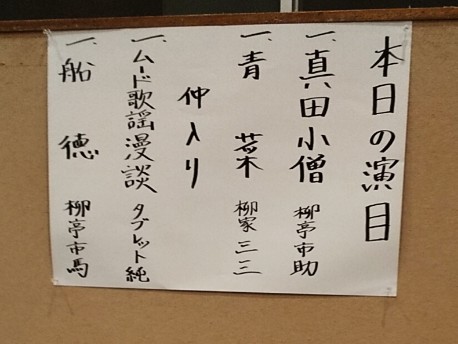 本日の演目
一、真田小僧 柳亭市助
一、青菜 柳家三三
仲入り
一、ムード歌謡漫談 タブレット純
一、船徳 柳亭市馬